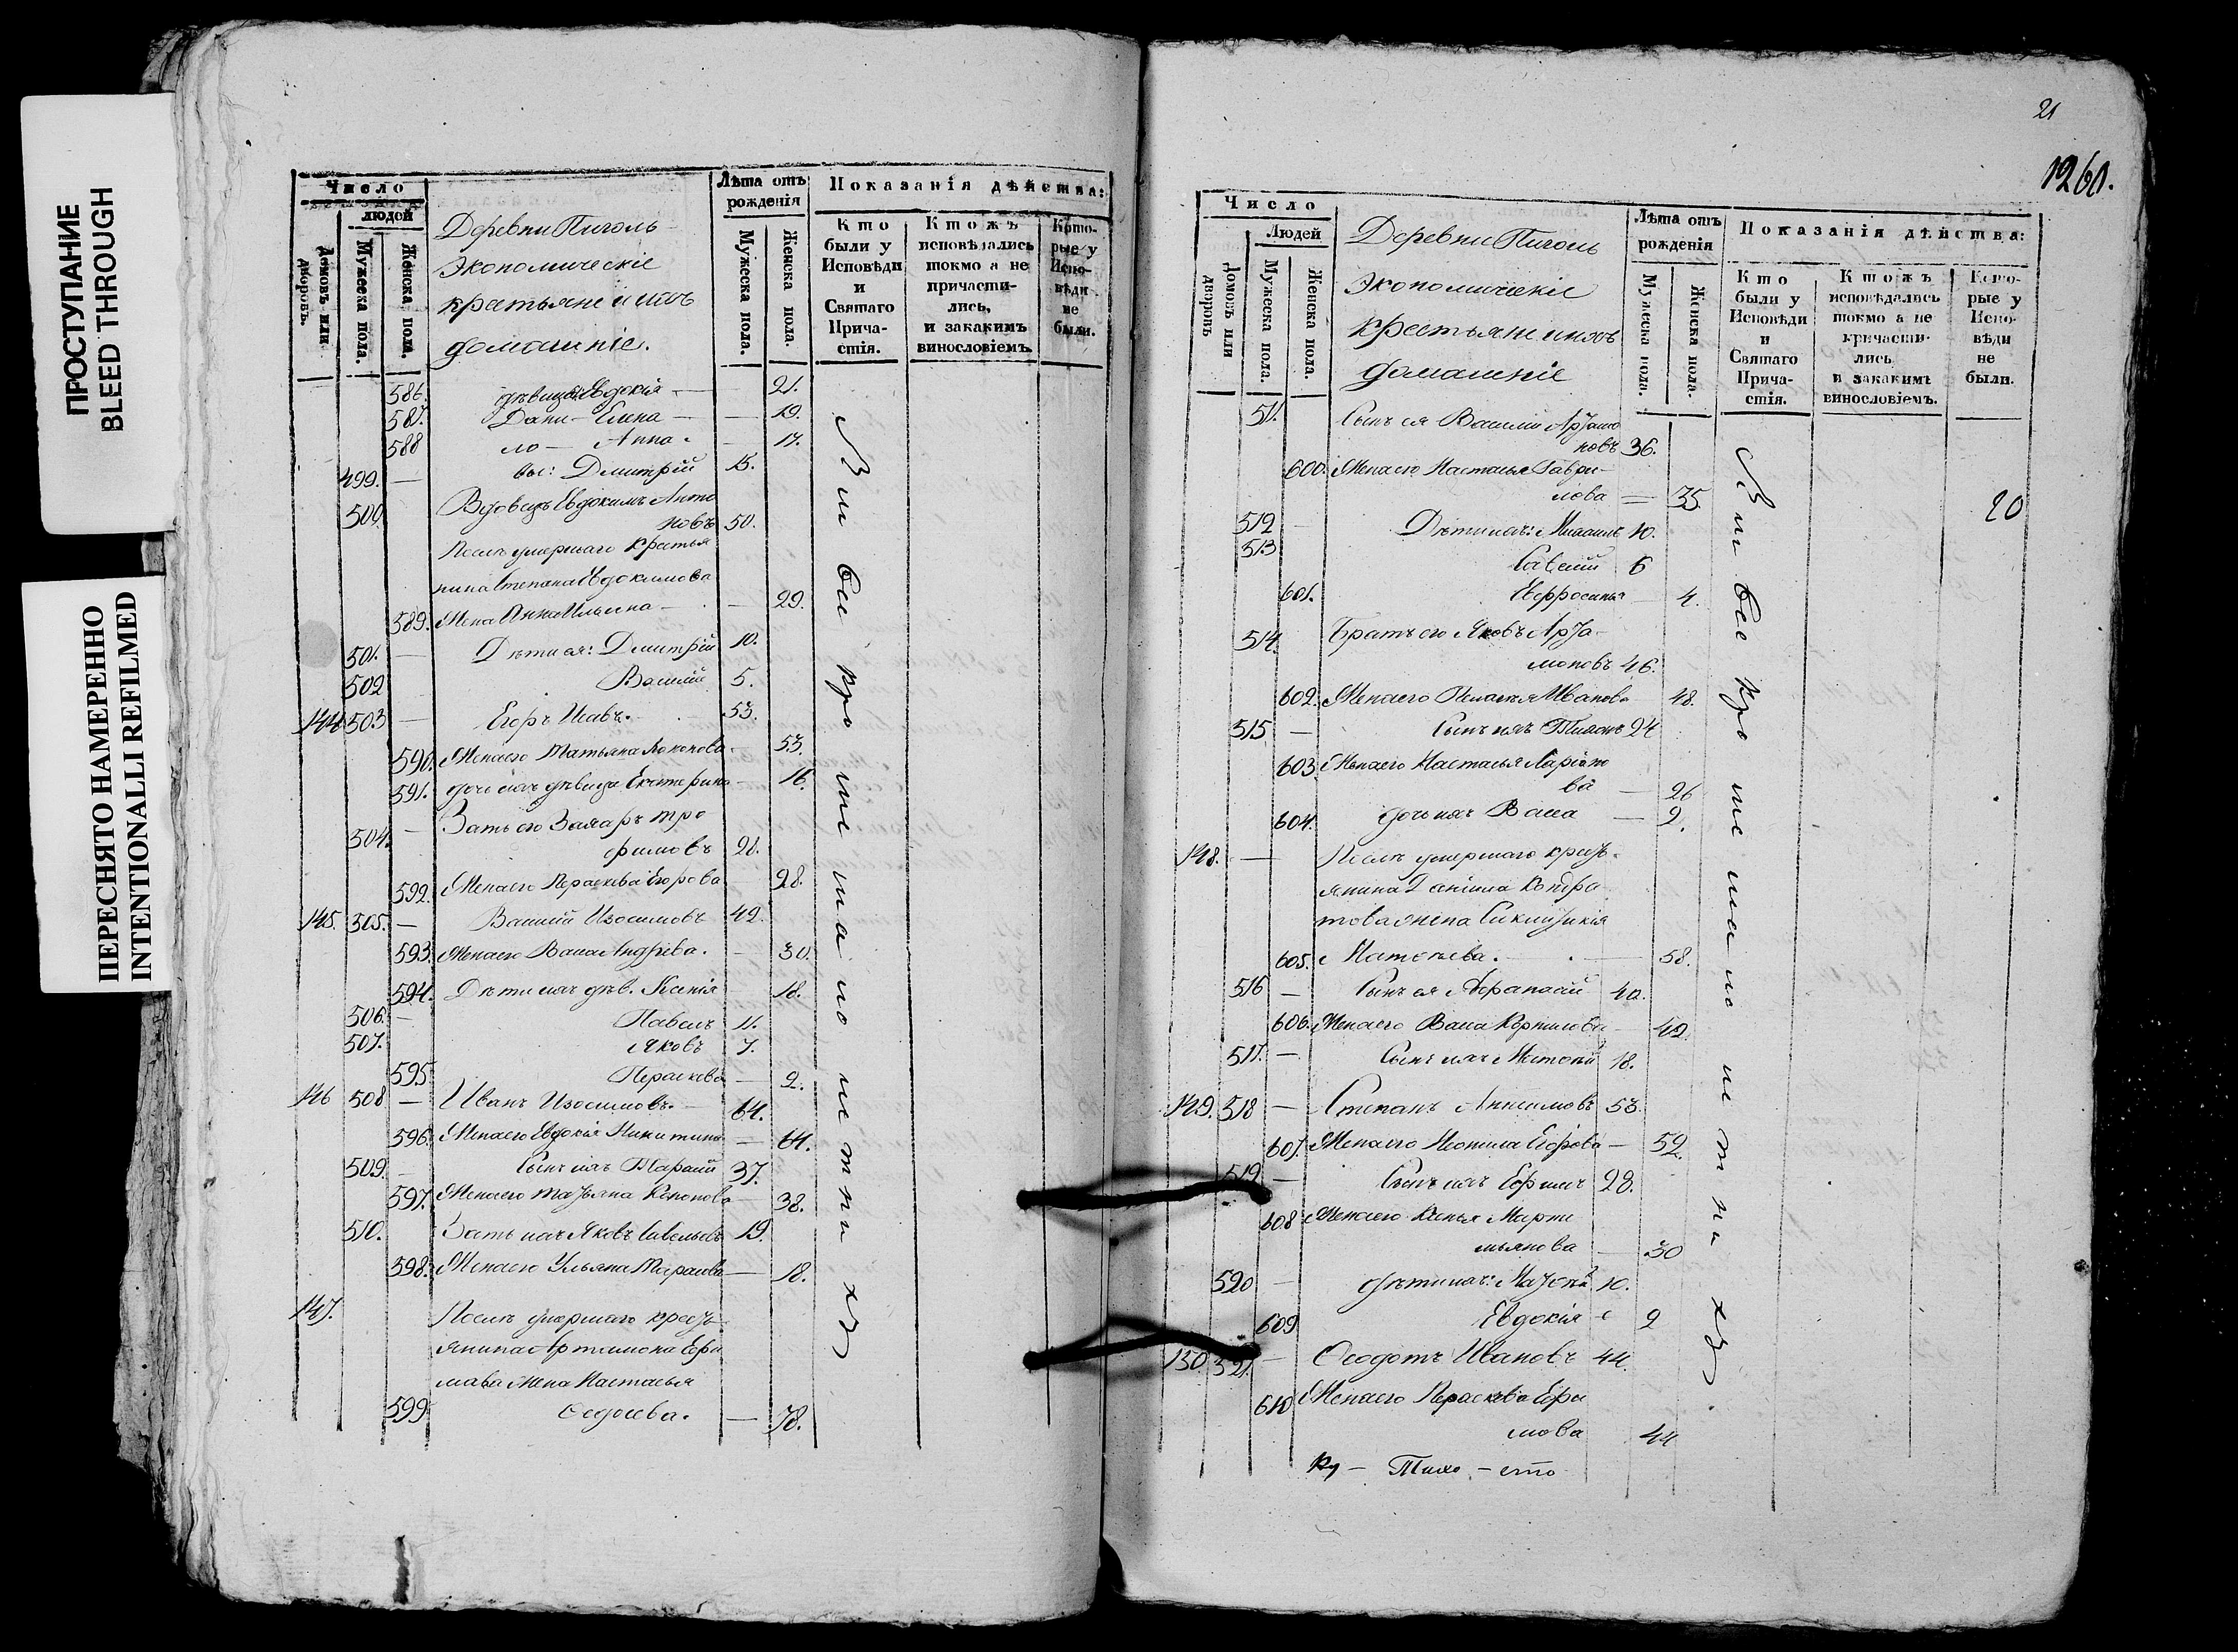 ПРОСТУПАНИЕ
BLEED THROUGH
ПЕРЕСНЯТО НАМЕРЕННО
INTENTIONALLI REFILMED
Число
людей
Домовъ или дворовъ.
Мужеска пола.
Женска пола.
Деревни Пиголь
Экономическіе
крестьяне и ихъ
домашніе.
Лѣта отъ рожденія
Мужеска пола.
Женска пола.
Показанія дѣйства:
Кто были у Исповѣди и Святаго Прича- стія.
Ктожъ исповѣдались токмо а не причасти- лись, и закакимъ винословіемъ.
Кото- рые у Испо- вѣди не были.
586. дѣвица Евдокія — 21.
587. Дани- Елена — 19.
588 ло — Анна — 17.
499. — вы: Дмитрій 15.
500. Вдовецъ Евдокимъ Анто
новъ 50.
Послѣ умершаго крестья
нина Степана Евдокимова
589. Жена Анна Ильина — 29.
501. — Дѣти ея: Дмитрій 10.
502 Василій 5.
144 503 — Егоръ Исавъ. 53.
590. Жена его Татьяна 53.
591. дочь ихъ дѣвица Екатерина 16.
504. — Зять его Захаръ Тро
фимовъ 21.
592. Жена его Параскева Егорова 28.
145. 505. — Василій Изосимовъ 42.
593. Жена его Васса Андреева. — 30.
594. Дѣти ихъ дѣв. Ксенія 18.
506. — Павелъ 11.
507. Яковъ 7.
595. Параскева — 2.
146 508 — Иванъ Изосимовъ. 64.
596. Жена его Евдокія Никитина — 64.
509. — Сынъ ихъ Тарасій 37.
597. Жена его Татьяна Кононова 38.
510. Зять ихъ Яковъ Савельевъ 19.
598. Жена его Ульяна Тарасова — 18.
147. Послѣ умершаго кресть
янина Артамона Ефи
мова жена Настасья
599. Федосева. — 78.
21
1260.
Число
Людей
Домовъ или дворовъ
Мужеска пола.
Женска пола.
Деревни Пиголь
Экономическіе
крестьяне и ихъ
домашніе
Лѣта отъ рожденія
Мужеска пола.
Женска пола.
Показанія дѣйства:
Кто были у Исповѣди и Святаго Прича- стія.
Ктожъ исповѣдались токмо а не причасти- лись и закакимъ винословіемъ.
Кото- рые у Испо- вѣди не были.
511. Сынъ ея Василій Артамо
новъ 36.
600. Жена его Настасья Гаври-
лова — 35.
20
512 — Дѣти ихъ: Михаилъ 10.
513 Савелій 6
601. Евфросинья 4.
514. Братъ его Яковъ Арта-
моновъ 46.
602. Жена его Пелагея Иванова 48.
515 — Сынъ ихъ Тихонъ 24
603. Жена его Настасья Ларіоно
ва — 26
604. дочь ихъ Васса — 2.
148. — Послѣ умершаго кресть-
янина Даніила Кондра
това жена Синклитикія
605. Матвѣева. — 58.
516 — Сынъ ея Афанасій 40.
606. Жена его Васса Корнилова — 42.
517. — Сынъ ихъ Матвѣй 18.
149. 518 — Степанъ Анисимовъ 53.
607. Жена его Неонила Егорова — 52.
519 — Сынъ ихъ Ефимъ 28.
608 Жена его Ксенья Марти
мьянова — 30
520 — дѣти ихъ: Матвѣй 10.
609 Евдокія 2
150. 521. — Ѳеодотъ Ивановъ 44.
610 Жена его Параскева Ефи
мова 44